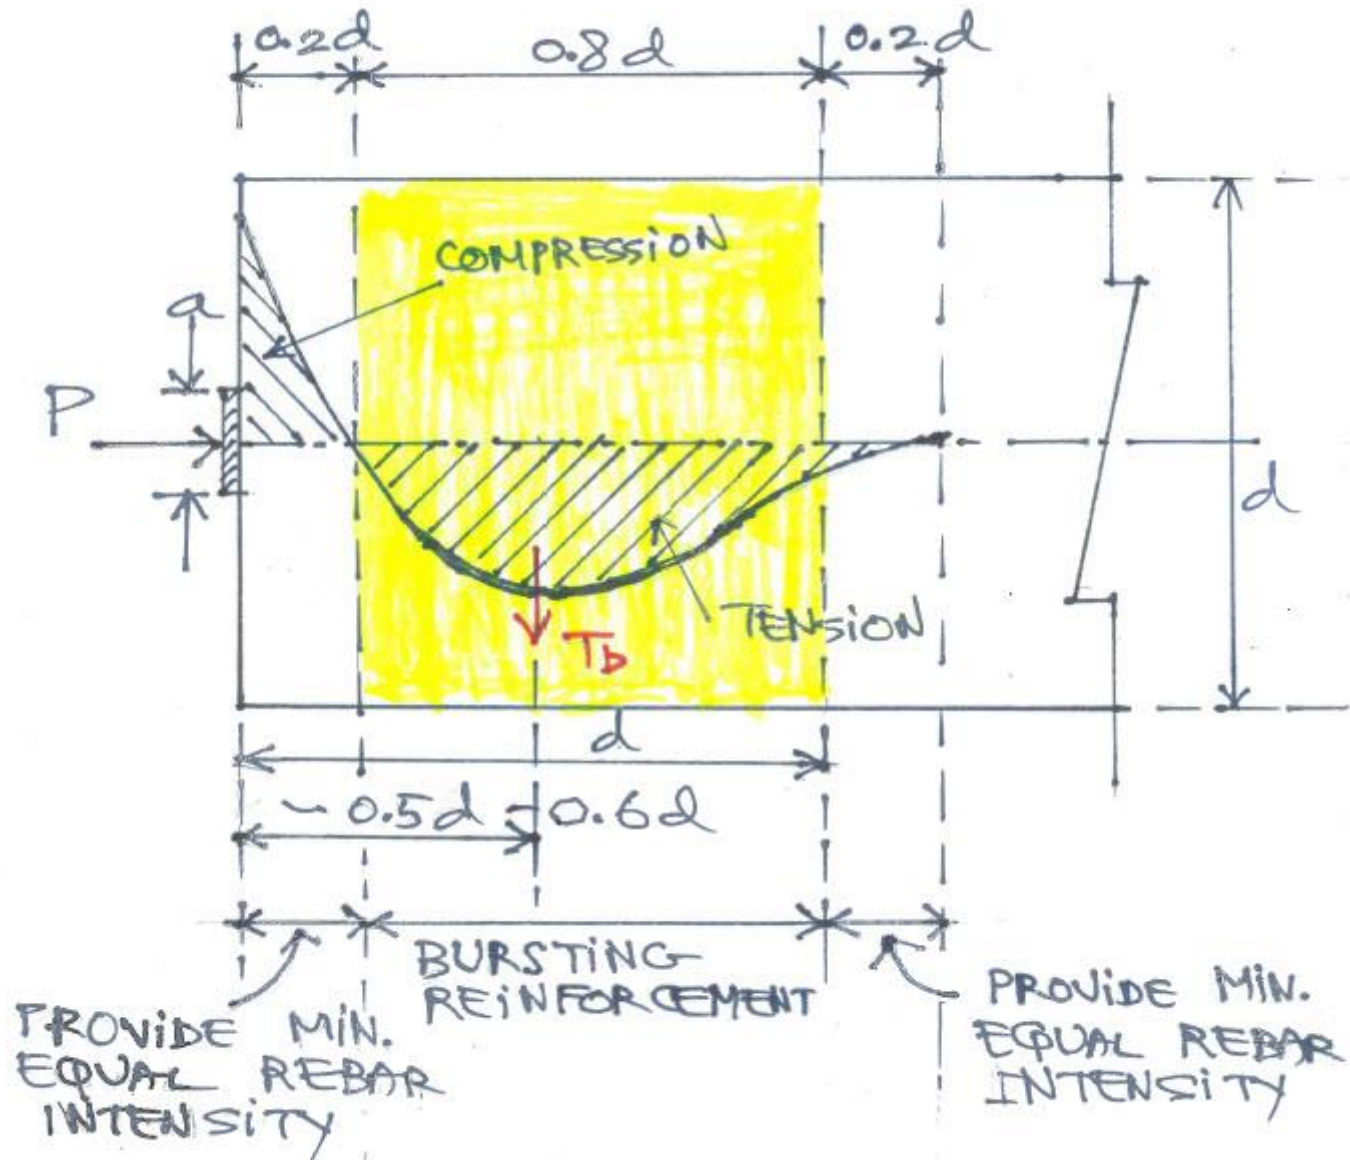 0.2d
0.8d
0.2d
COMPRESSION
a
P
d
TENSION
Tb
d
~ 0.5d - 0.6d
BURSTING
REINFORCEMENT
PROVIDE MIN.
EQUAL REBAR
INTENSITY
PROVIDE MIN.
EQUAL REBAR
INTENSITY